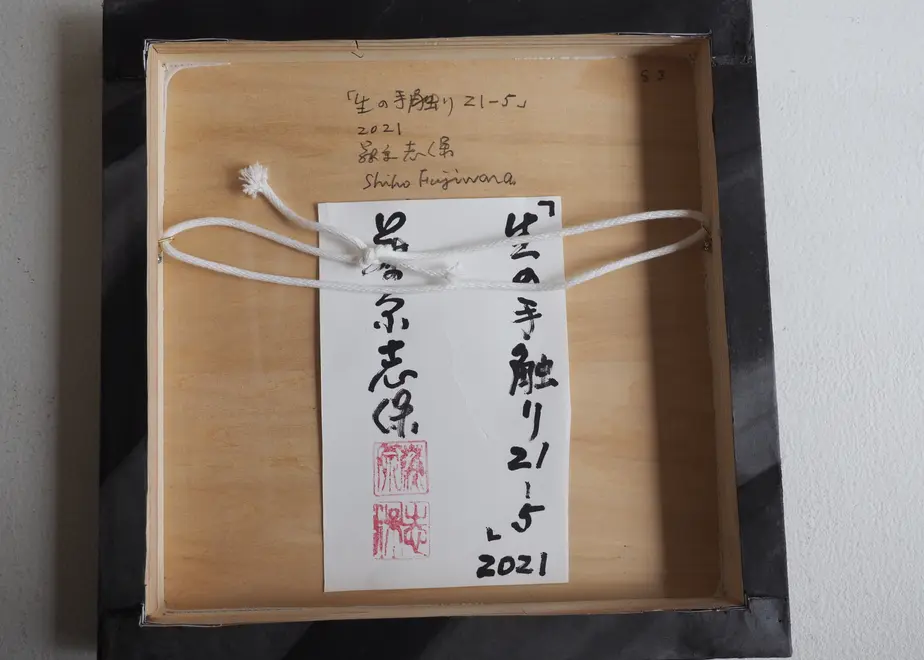 「生の手触り 21-5」
2021
藤原志保
Shiho Fujiwara
S3
「生の手触り21-5」
2021
藤原志保
藤原
志保